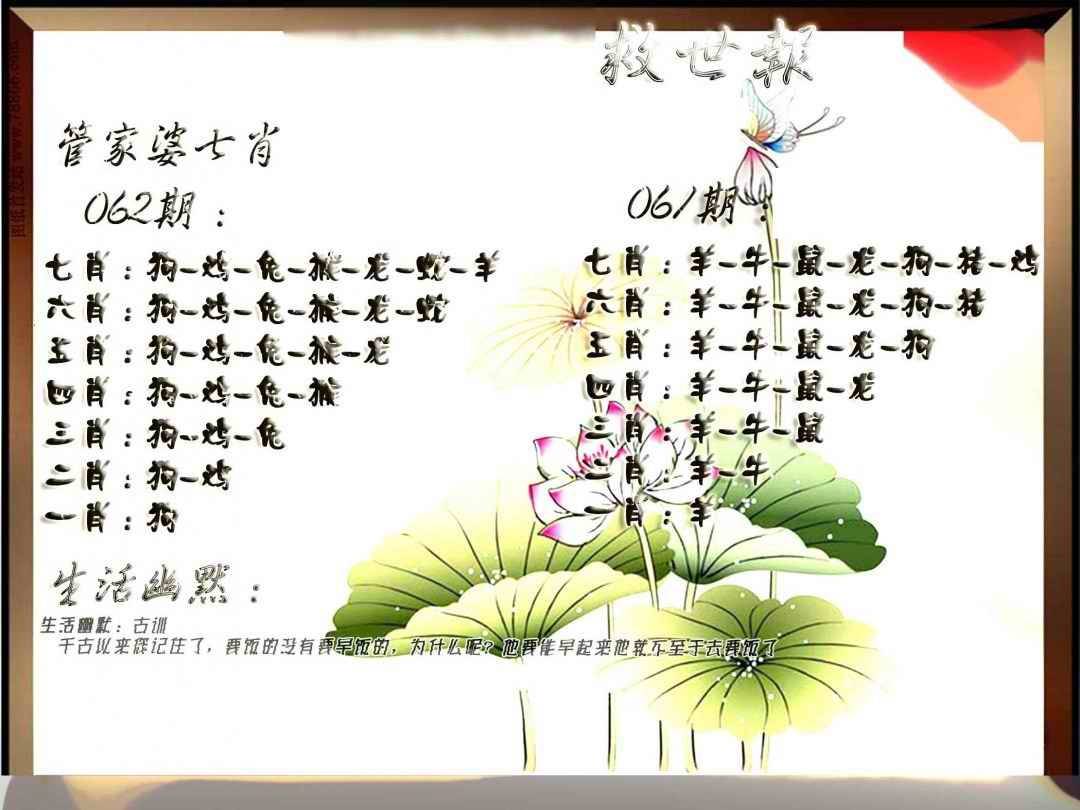 救世報
管家婆七肖
062期：
七肖：狗-鸡-兔-猴-龙-蛇-羊
六肖：狗-鸡-兔-猴-龙-蛇
五肖：狗-鸡-兔-猴-龙
四肖：狗-鸡-兔-猴
三肖：狗-鸡-兔
二肖：狗-鸡
一肖：狗
061期：
七肖：羊-牛-鼠-龙-狗-猪-鸡
六肖：羊-牛-鼠-龙-狗-猪
五肖：羊-牛-鼠-龙-狗
四肖：羊-牛-鼠-龙
三肖：羊-牛-鼠
二肖：羊-牛
一肖：羊
生活幽默：
生活幽默：古训
千古以来你记住了，要饭的没有要早饭的，为什么呢？他要能早起来他就不至于去要饭了